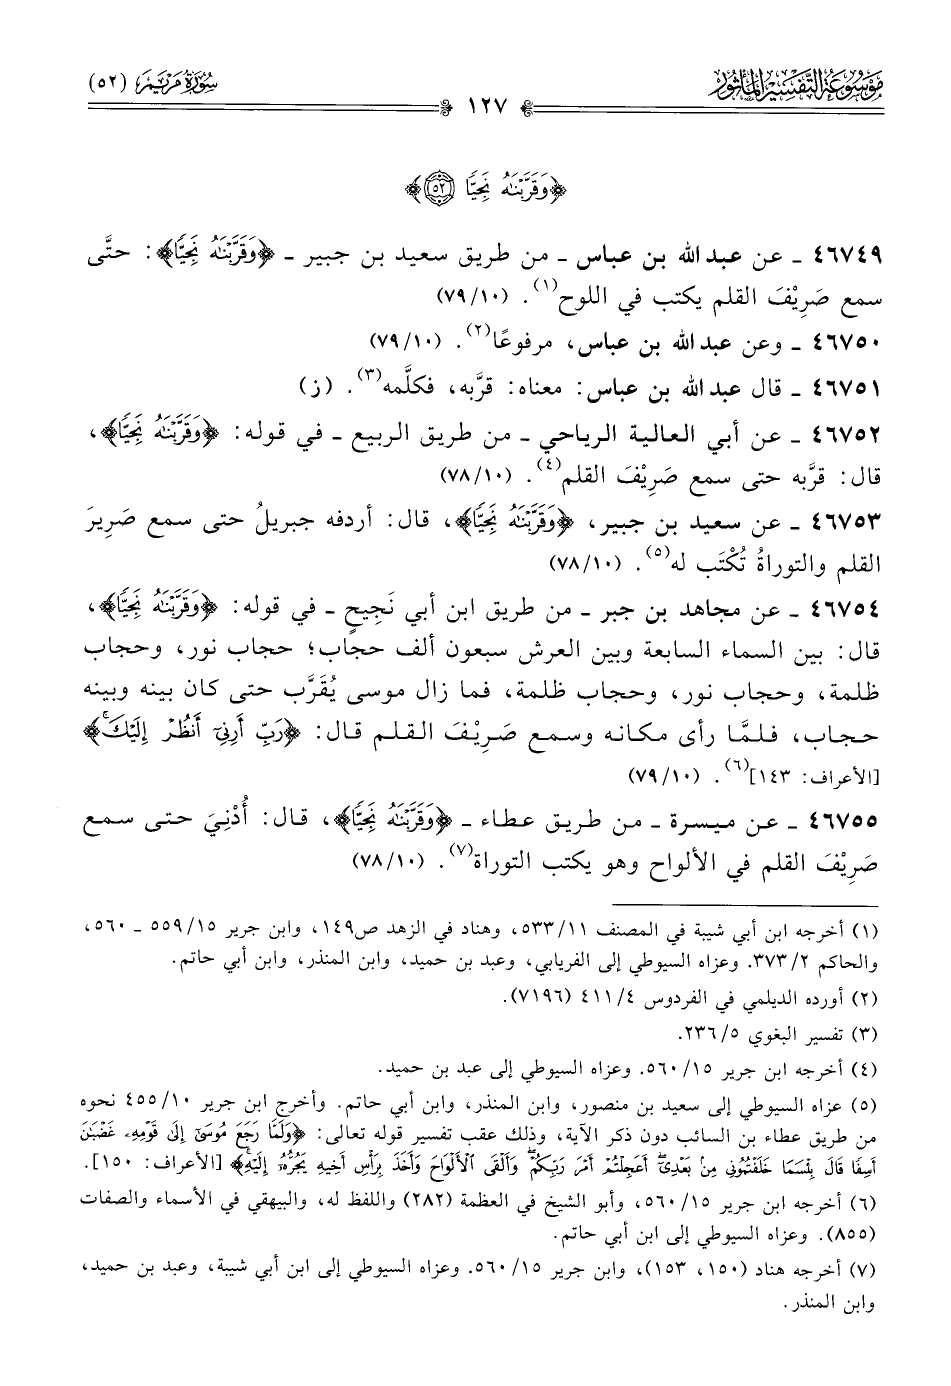 موسوعة التفسير المأثور
سورة مريم (٥٢)
١٢٧
﴿وَقَرَّبْنَٰهُ نَجِيًّا ٥٢﴾
٤٦٧٤٩ ـ عن عبد الله بن عباس ـ من طريق سعيد بن جبير ـ ﴿وَقَرَّبْنَٰهُ نَجِيًّا﴾: حتَّى
سمع صَرِيْفَ القلم يكتب في اللوح(١). (٧٩/١٠)
٤٦٧٥٠ ـ وعن عبد الله بن عباس، مرفوعًا(٢). (٧٩/١٠)
٤٦٧٥١ ـ قال عبد الله بن عباس: معناه: قرَّبه، فكلَّمه(٣). (ز)
٤٦٧٥٢ ـ عن أبي العالية الرياحي ـ من طريق الربيع ـ في قوله: ﴿وَقَرَّبْنَٰهُ نَجِيًّا﴾،
قال: قرَّبه حتى سمع صَرِيْفَ القلم(٤). (٧٨/١٠)
٤٦٧٥٣ ـ عن سعيد بن جبير، ﴿وَقَرَّبْنَٰهُ نَجِيًّا﴾، قال: أردفه جبريلُ حتى سمع صَرِيرَ
القلم والتوراةُ تُكْتَب له(٥). (٧٨/١٠)
٤٦٧٥٤ ـ عن مجاهد بن جبر ـ من طريق ابن أبي نَجِيحٍ ـ في قوله: ﴿وَقَرَّبْنَٰهُ نَجِيًّا﴾،
قال: بين السماء السابعة وبين العرش سبعون ألف حجاب؛ حجاب نور، وحجاب
ظلمة، وحجاب نور، وحجاب ظلمة، فما زال موسى يُقَرَّب حتى كان بينه وبينه
حجاب، فلمَّا رأى مكانه وسمع صَرِيْفَ القلم قال: ﴿رَبِّ أَرِنِىٓ أَنظُرْ إِلَيْكَۚ﴾
[الأعراف: ١٤٣](٦). (٧٩/١٠)
٤٦٧٥٥ ـ عن ميسرة ـ من طريق عطاء ـ ﴿وَقَرَّبْنَٰهُ نَجِيًّا﴾، قال: أُدْنِيَ حتى سمع
صَرِيْفَ القلم في الألواح وهو يكتب التوراة(٧). (٧٨/١٠)
(١) أخرجه ابن أبي شيبة في المصنف ٥٣٣/١١، وهناد في الزهد ص١٤٩، وابن جرير ٥٥٩/١٥ ـ ٥٦٠،
والحاكم ٣٧٣/٢. وعزاه السيوطي إلى الفريابي، وعبد بن حميد، وابن المنذر، وابن أبي حاتم.
(٢) أورده الديلمي في الفردوس ٤١١/٤ (٧١٩٦).
(٣) تفسير البغوي ٢٣٦/٥.
(٤) أخرجه ابن جرير ٥٦٠/١٥. وعزاه السيوطي إلى عبد بن حميد.
(٥) عزاه السيوطي إلى سعيد بن منصور، وابن المنذر، وابن أبي حاتم. وأخرج ابن جرير ٤٥٥/١٠ نحوه
من طريق عطاء بن السائب دون ذكر الآية، وذلك عقب تفسير قوله تعالى: ﴿وَلَمَّا رَجَعَ مُوسَىٰٓ إِلَىٰ قَوْمِهِۦ غَضْبَٰنَ
أَسِفًا قَالَ بِئْسَمَا خَلَفْتُمُونِى مِنۢ بَعْدِىٓۖ أَعَجِلْتُمْ أَمْرَ رَبِّكُمْۖ وَأَلْقَى ٱلْأَلْوَاحَ وَأَخَذَ بِرَأْسِ أَخِيهِ يَجُرُّهُۥٓ إِلَيْهِۚ﴾ [الأعراف: ١٥٠].
(٦) أخرجه ابن جرير ٥٦٠/١٥، وأبو الشيخ في العظمة (٢٨٢) واللفظ له، والبيهقي في الأسماء والصفات
(٨٥٥). وعزاه السيوطي إلى ابن أبي حاتم.
(٧) أخرجه هناد (١٥٠، ١٥٣)، وابن جرير ٥٦٠/١٥. وعزاه السيوطي إلى ابن أبي شيبة، وعبد بن حميد،
وابن المنذر.